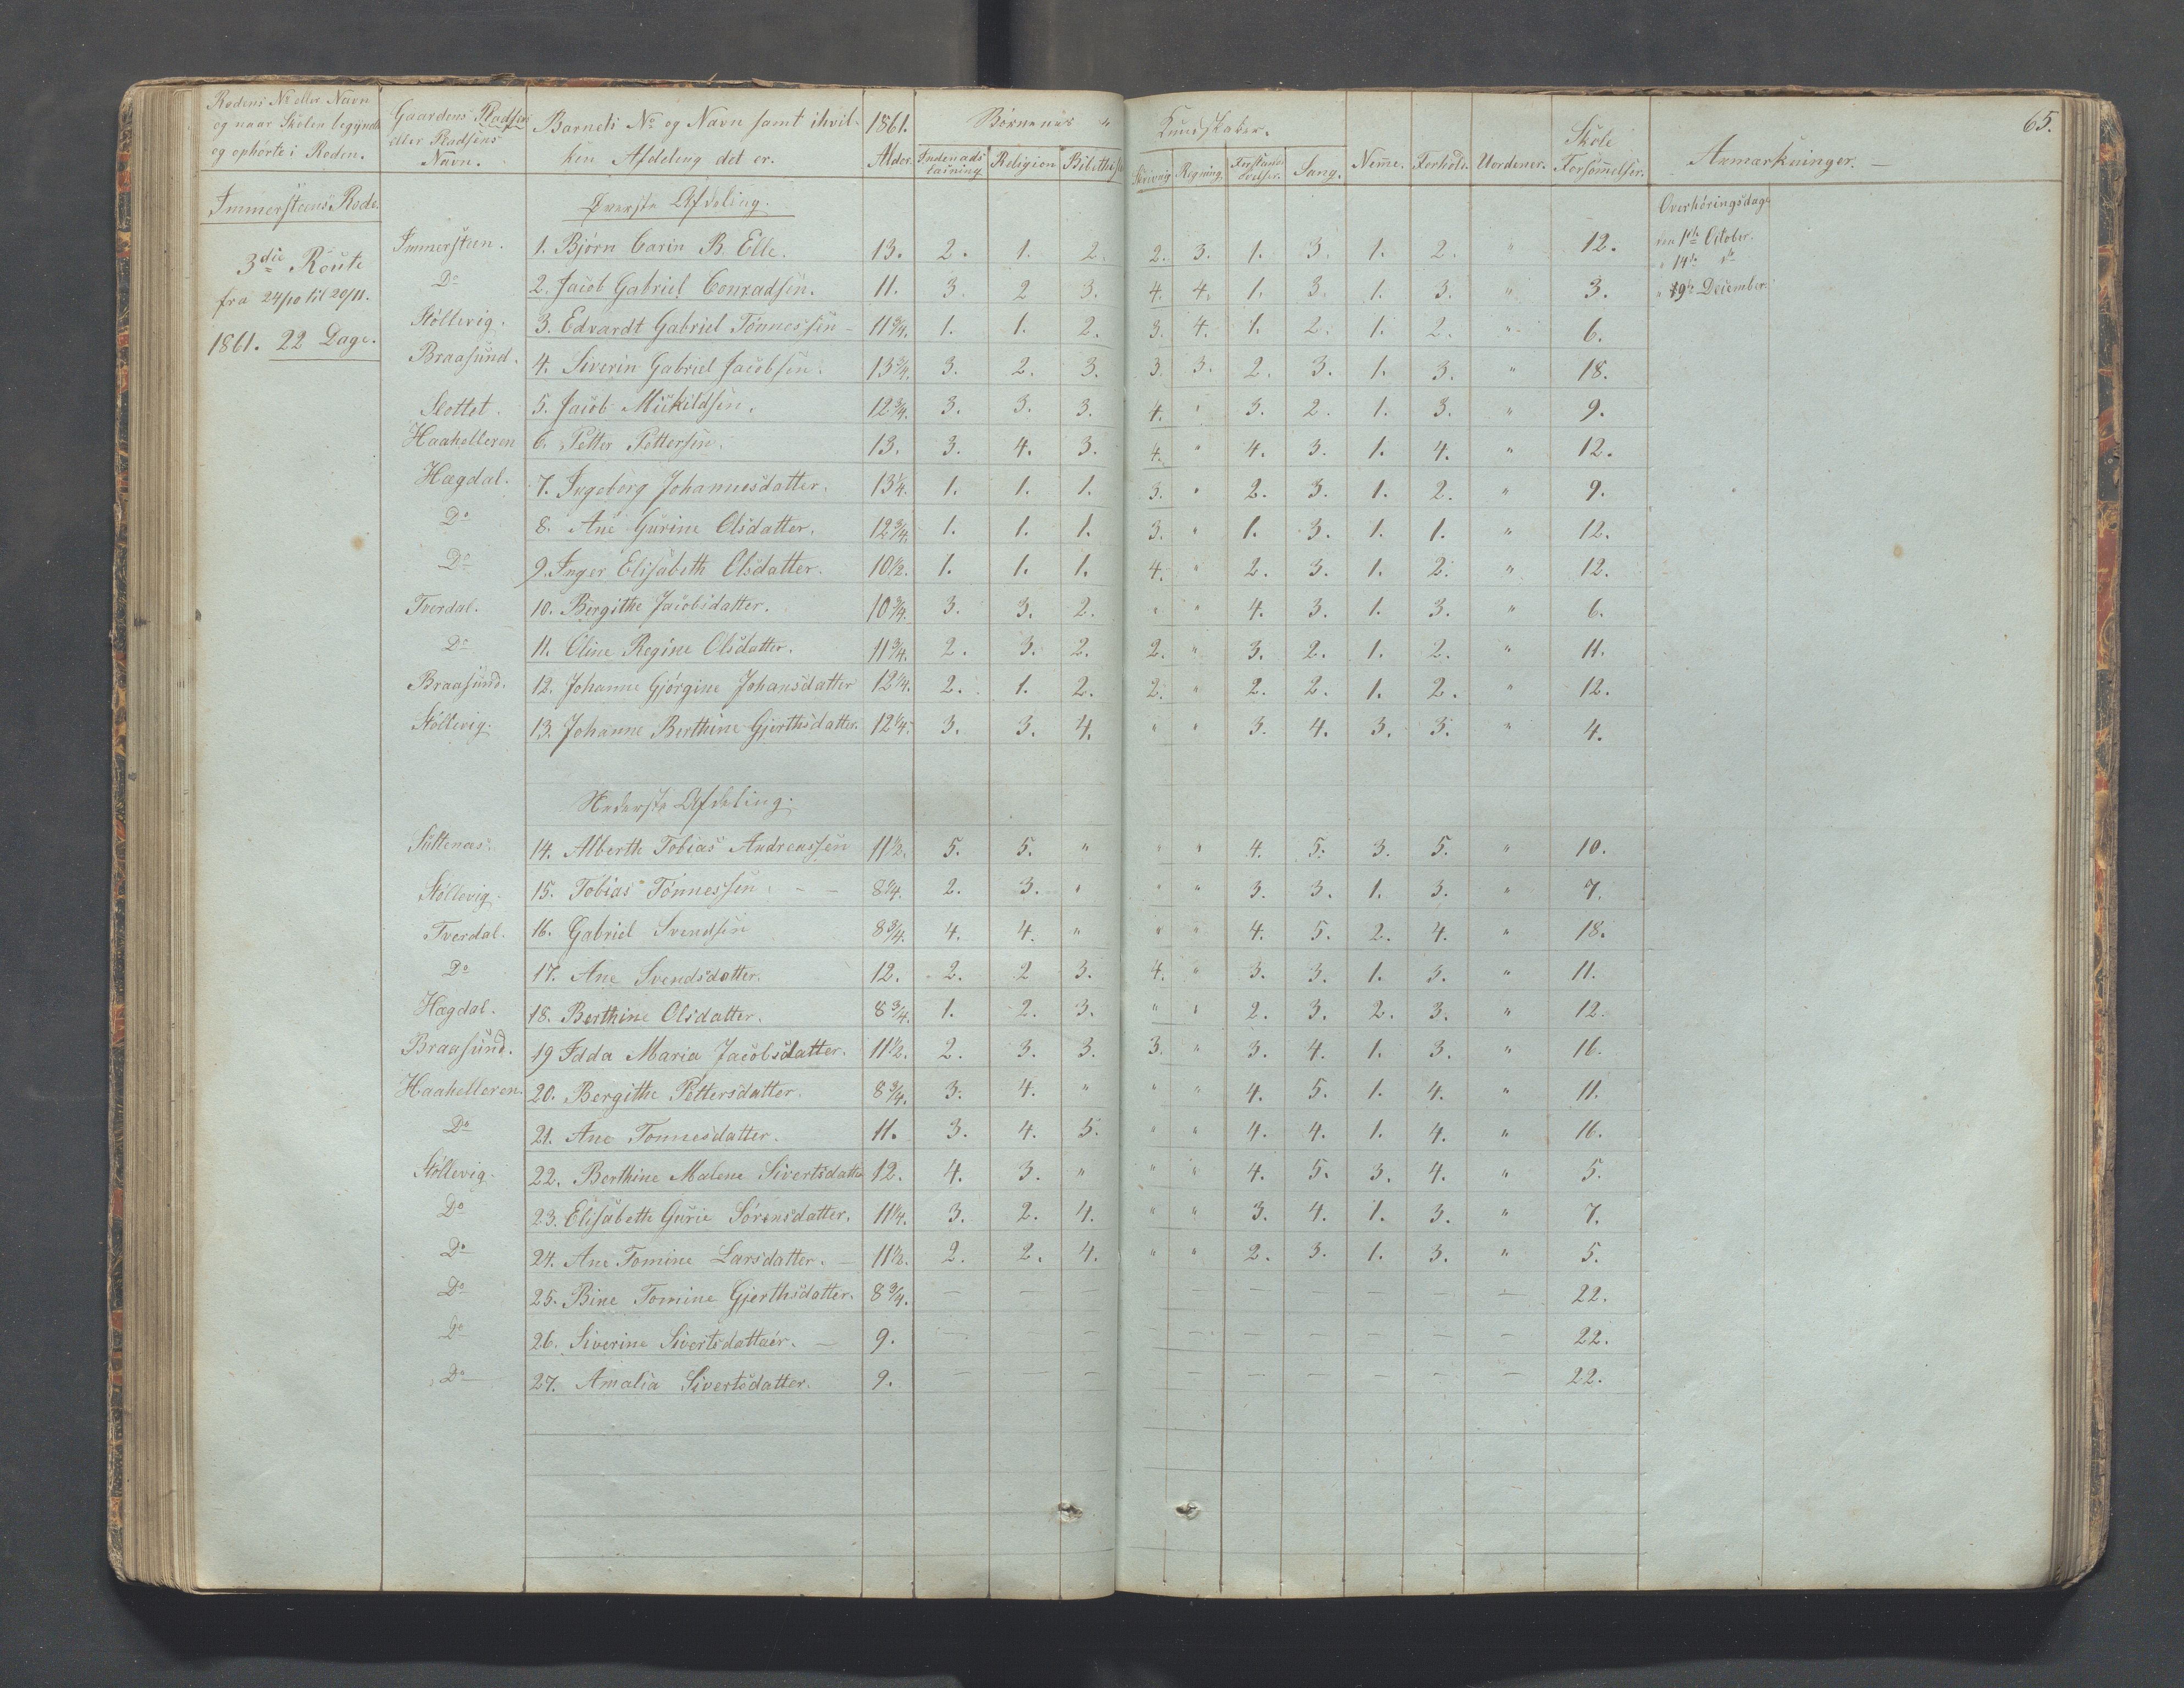 65.
Rodens No eller Navn og naar Skolen begyndte og ophørte i Roden. | Gaardens Pladsen eller Pladsens Navn. | Barnets No og Navn samt i hvilken Afdeling det er. | 1861. Alder. | Børnenes Kundskaber. Indenadslæsning | Religion | Bibelhist | Skrivnig | Regning | Forstands øvelser. | Sang. | Nemme. | Forhold. | Uordener. | Skole Forsømmelser. | Anmærkninger. —
Immersteens Rode. | Øverste Afdeling. | Overhøringsdage
Immersteen. 1. Bjørn Carin B. Elle. 13. 2. 1. 2. 2. 3. 1. 3. 1. 2. " 12. den 1ste October.
3die Route | " 14de do
Do 2. Jacob Gabriel Conradsen. 11. 3. 2 3. 4. 4. 1. 3. 1. 3. " 3. " 19de December.
fra 24/10 til 20/11.
Støllevig. 3. Edvardt Gabriel Tønnessen – 11 3/4. 1. 1. 2. 3. 4. 1. 2. 1. 2. " 6.
1861. 22 Dage.
Braasund. 4. Siverin Gabriel Jacobsen. 13 3/4. 3. 2. 3. 3. 3. 2. 3. 1. 3. " 18.
Slottet. 5. Jacob Mikildsen. 12 3/4. 3. 3. 3. 4. " 3. 2. 1. 3. " 9.
Haahelleren 6. Petter Pettersen. 13. 3. 4. 3. 4. " 4. 3. 1. 4. " 12.
Hægdal. 7. Ingeborg Johannesdatter. 13 1/4. 1. 1. 1. 3. " 2. 3. 1. 2. " 9.
Do 8. Ane Gurine Olsdatter. 12 3/4. 1. 1. 1. 3. " 1. 3. 1. 1. " 12.
Do 9. Inger Elisabeth Olsdatter. 10 1/2. 1. 1. 1. 4. " 2. 3. 1. 2. " 12.
Tverdal. 10. Bergithe Jacobsdatter. 10 3/4. 3. 3. 2. " " 4. 3. 1. 3. " 6.
Do 11. Oline Regine Olsdatter. 11 3/4. 2. 3. 2. 2. " 3. 2. 1. 2. " 11.
Braasund. 12. Johanne Gjørgine Johansdatter 12 1/4. 2. 1. 2. 2. " 2. 2. 1. 2. " 12.
Støllevig. 13. Johanne Berthine Gjerthsdatter. 12 1/4. 3. 3. 4. " " 3. 4. 3. 3. " 4.
Nederste Afdeling.
14. Alberth Tobias Andreassen 11 1/2. 5. 5. " " " 4. 5. 3. 5. " 10.
Støllevig. 15. Tobias Tønnessen. – – 8 1/4. 2. 3. " " " 3. 3. 1. 3. " 7.
Tverdal. 16. Gabriel Svendsen 8 3/4. 4. 4. " " " 4. 5. 2. 4. " 18.
Do 17. Ane Svendsdatter. 12. 2. 2 3. 4. " 3. 3. 1. 3. " 11.
Hægdal. 18. Berthine Olsdatter. 8 3/4. 1. 2. 3. " " 2. 3. 2. 3. " 12.
Braasund. 19 Idda Maria Jacobsdatter. 11 1/2. 2. 3. 3. 3. " 3. 4. 1. 3. " 16.
Haahelleren. 20. Bergithe Pettersdatter. 8 3/4. 3. 4. " " " 4. 5. 1. 4. " 11.
Do 21. Ane Tonnesdatter. 11. 3. 4. 5. " " 4. 4. 1. 4. " 16.
Støllevig. 22. Berthine Malene Sivertsdatter 12. 4. 3. " " " 4. 5. 3. 4. " 5.
Do 23. Elisabeth Gurie Sørensdatter. 11 1/4. 3. 2. 4. " " 3. 4. 1. 3. " 7.
Do 24. Ane Tomine Larsdatter. – 11 1/2. 2. 2. 4. " " 2. 3. 1. 3. " 5.
Do 25. Bine Tomine Gjerthsdatter. 8 3/4. — — — — — — — — — 22.
Do 26. Siverine Sivertsdattaer. — 9. — — — — — — — — — 22.
Do 27. Amalia Sivertsdatter. 9. — — — — — — — — — 22.